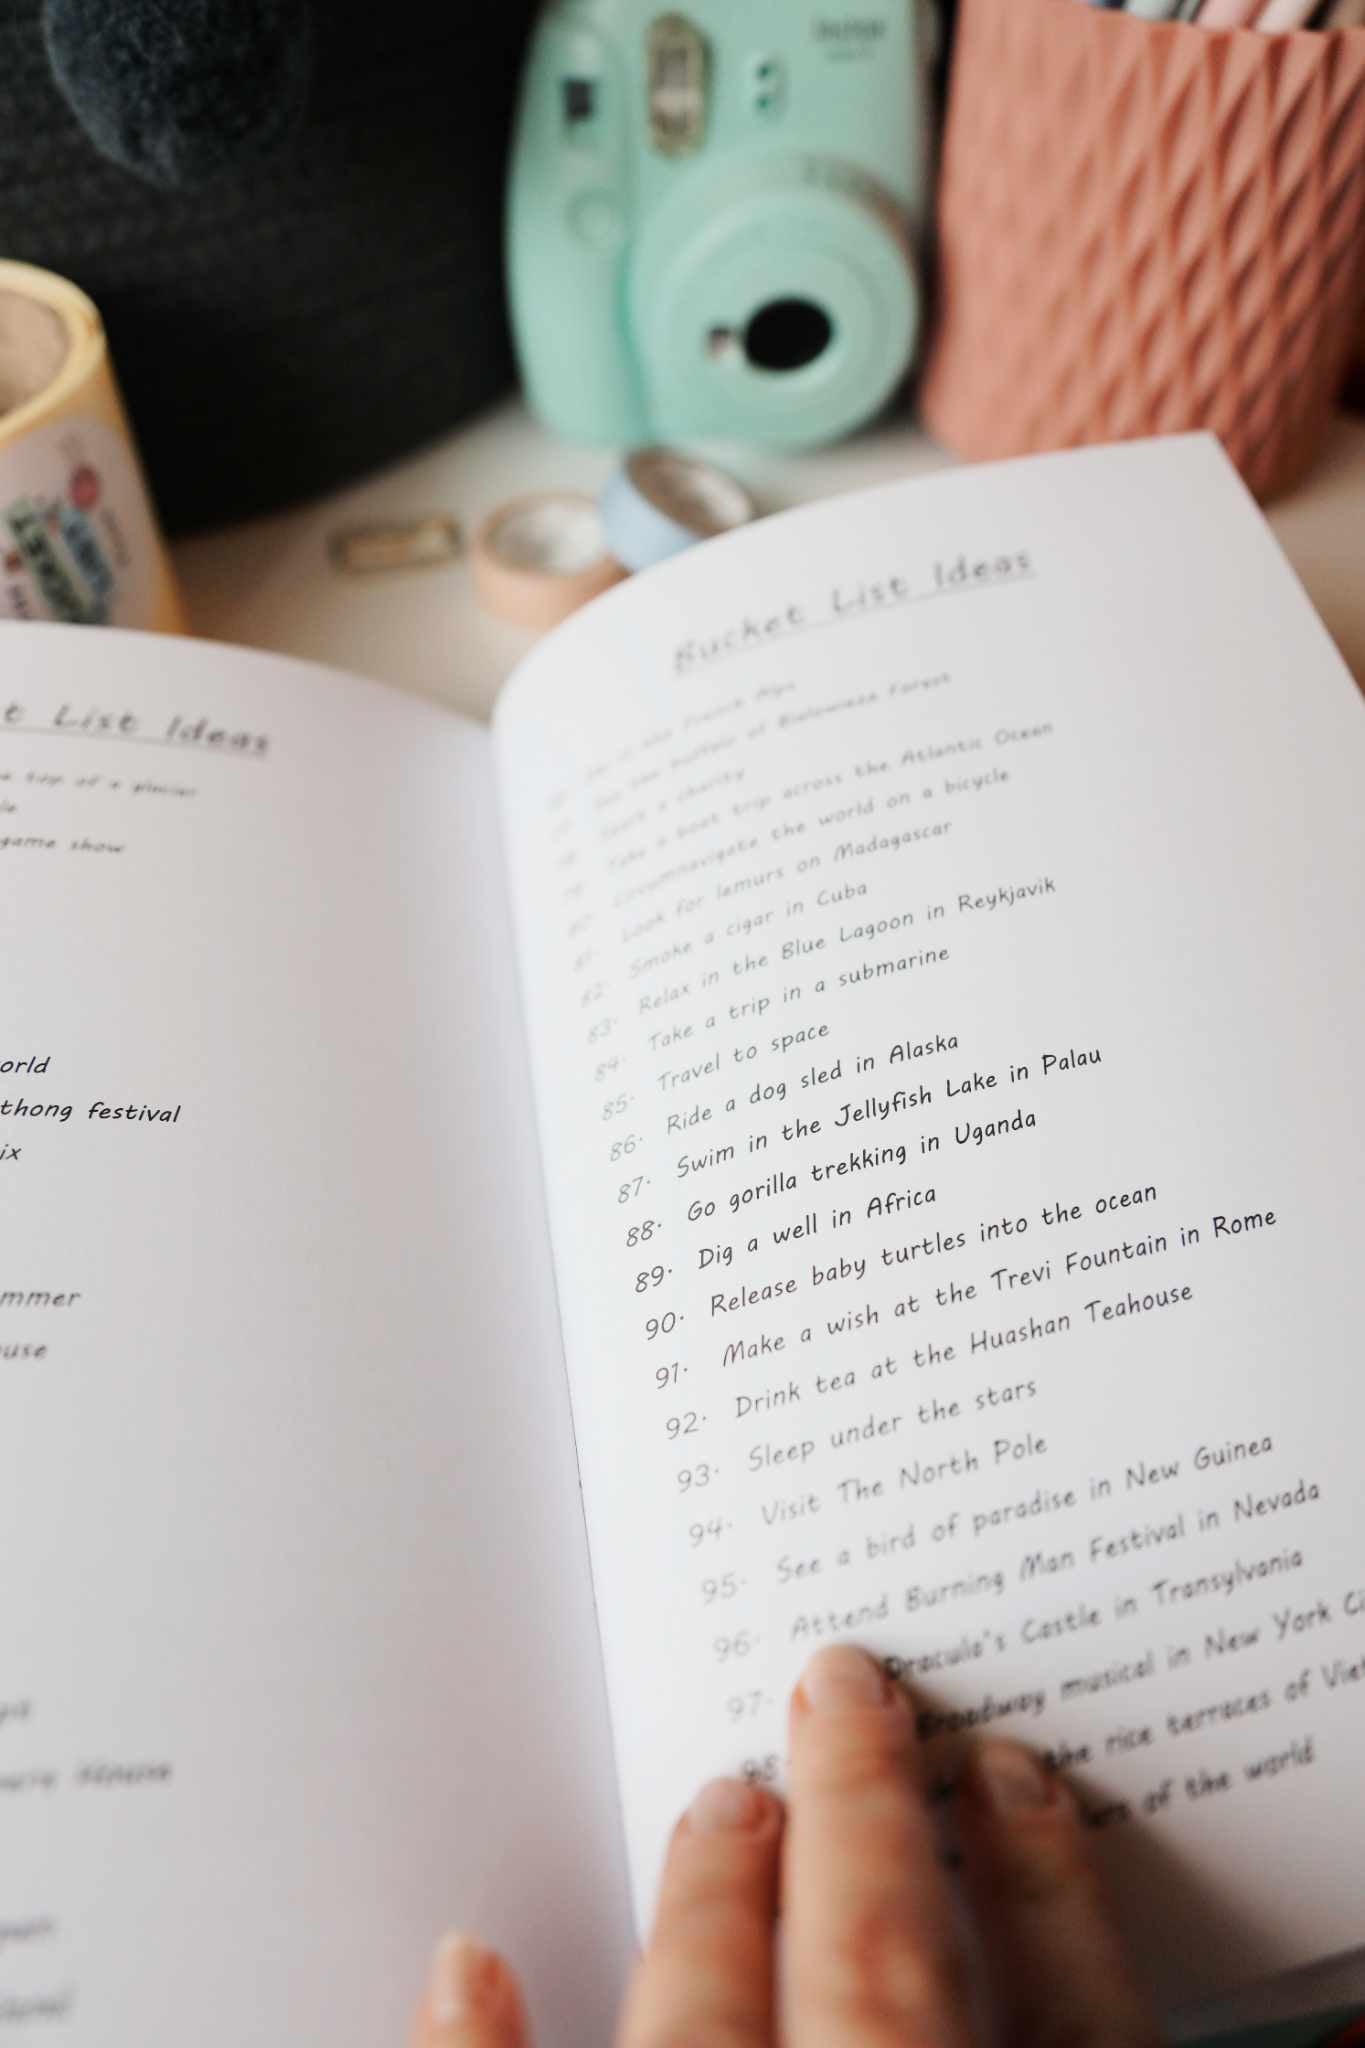 t List Ideas
top of a glacier
game show
orld
thong festival
ix
mmer
use
House
Bucket List Ideas
in the French Alps
See the buffalo of Bialowieza Forest
a charity
79. Take a boat trip across the Atlantic Ocean
80. Circumnavigate the world on a bicycle
81. Look for lemurs on Madagascar
82. Smoke a cigar in Cuba
83. Relax in the Blue Lagoon in Reykjavik
84. Take a trip in a submarine
85. Travel to space
86. Ride a dog sled in Alaska
87. Swim in the Jellyfish Lake in Palau
88. Go gorilla trekking in Uganda
89. Dig a well in Africa
90. Release baby turtles into the ocean
91. Make a wish at the Trevi Fountain in Rome
92. Drink tea at the Huashan Teahouse
93. Sleep under the stars
94. Visit The North Pole
95. See a bird of paradise in New Guinea
96. Attend Burning Man Festival in Nevada
97. Dracula's Castle in Transylvania
98. Broadway musical in New York Ci
the rice terraces of Viet
of the world